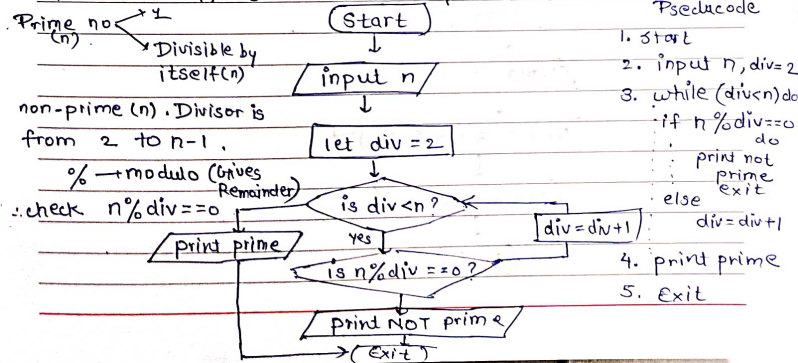 Prime no → 1
(n)
→ Divisible by
itself(n)
non-prime (n). Divisor is
from 2 to n-1.
% → modulo (Gives
Remainder)
∴ check n%div==0
Start
input n
let div = 2
is div<n?
yes
print prime
div=div+1
is n%div ==0?
print NOT prime
(Exit)
Pseducode
1. Start
2. input n, div=2
3. while (div<n) do
if n%div==0
do
print not
prime
exit
else
div=div+1
4. print prime
5. Exit